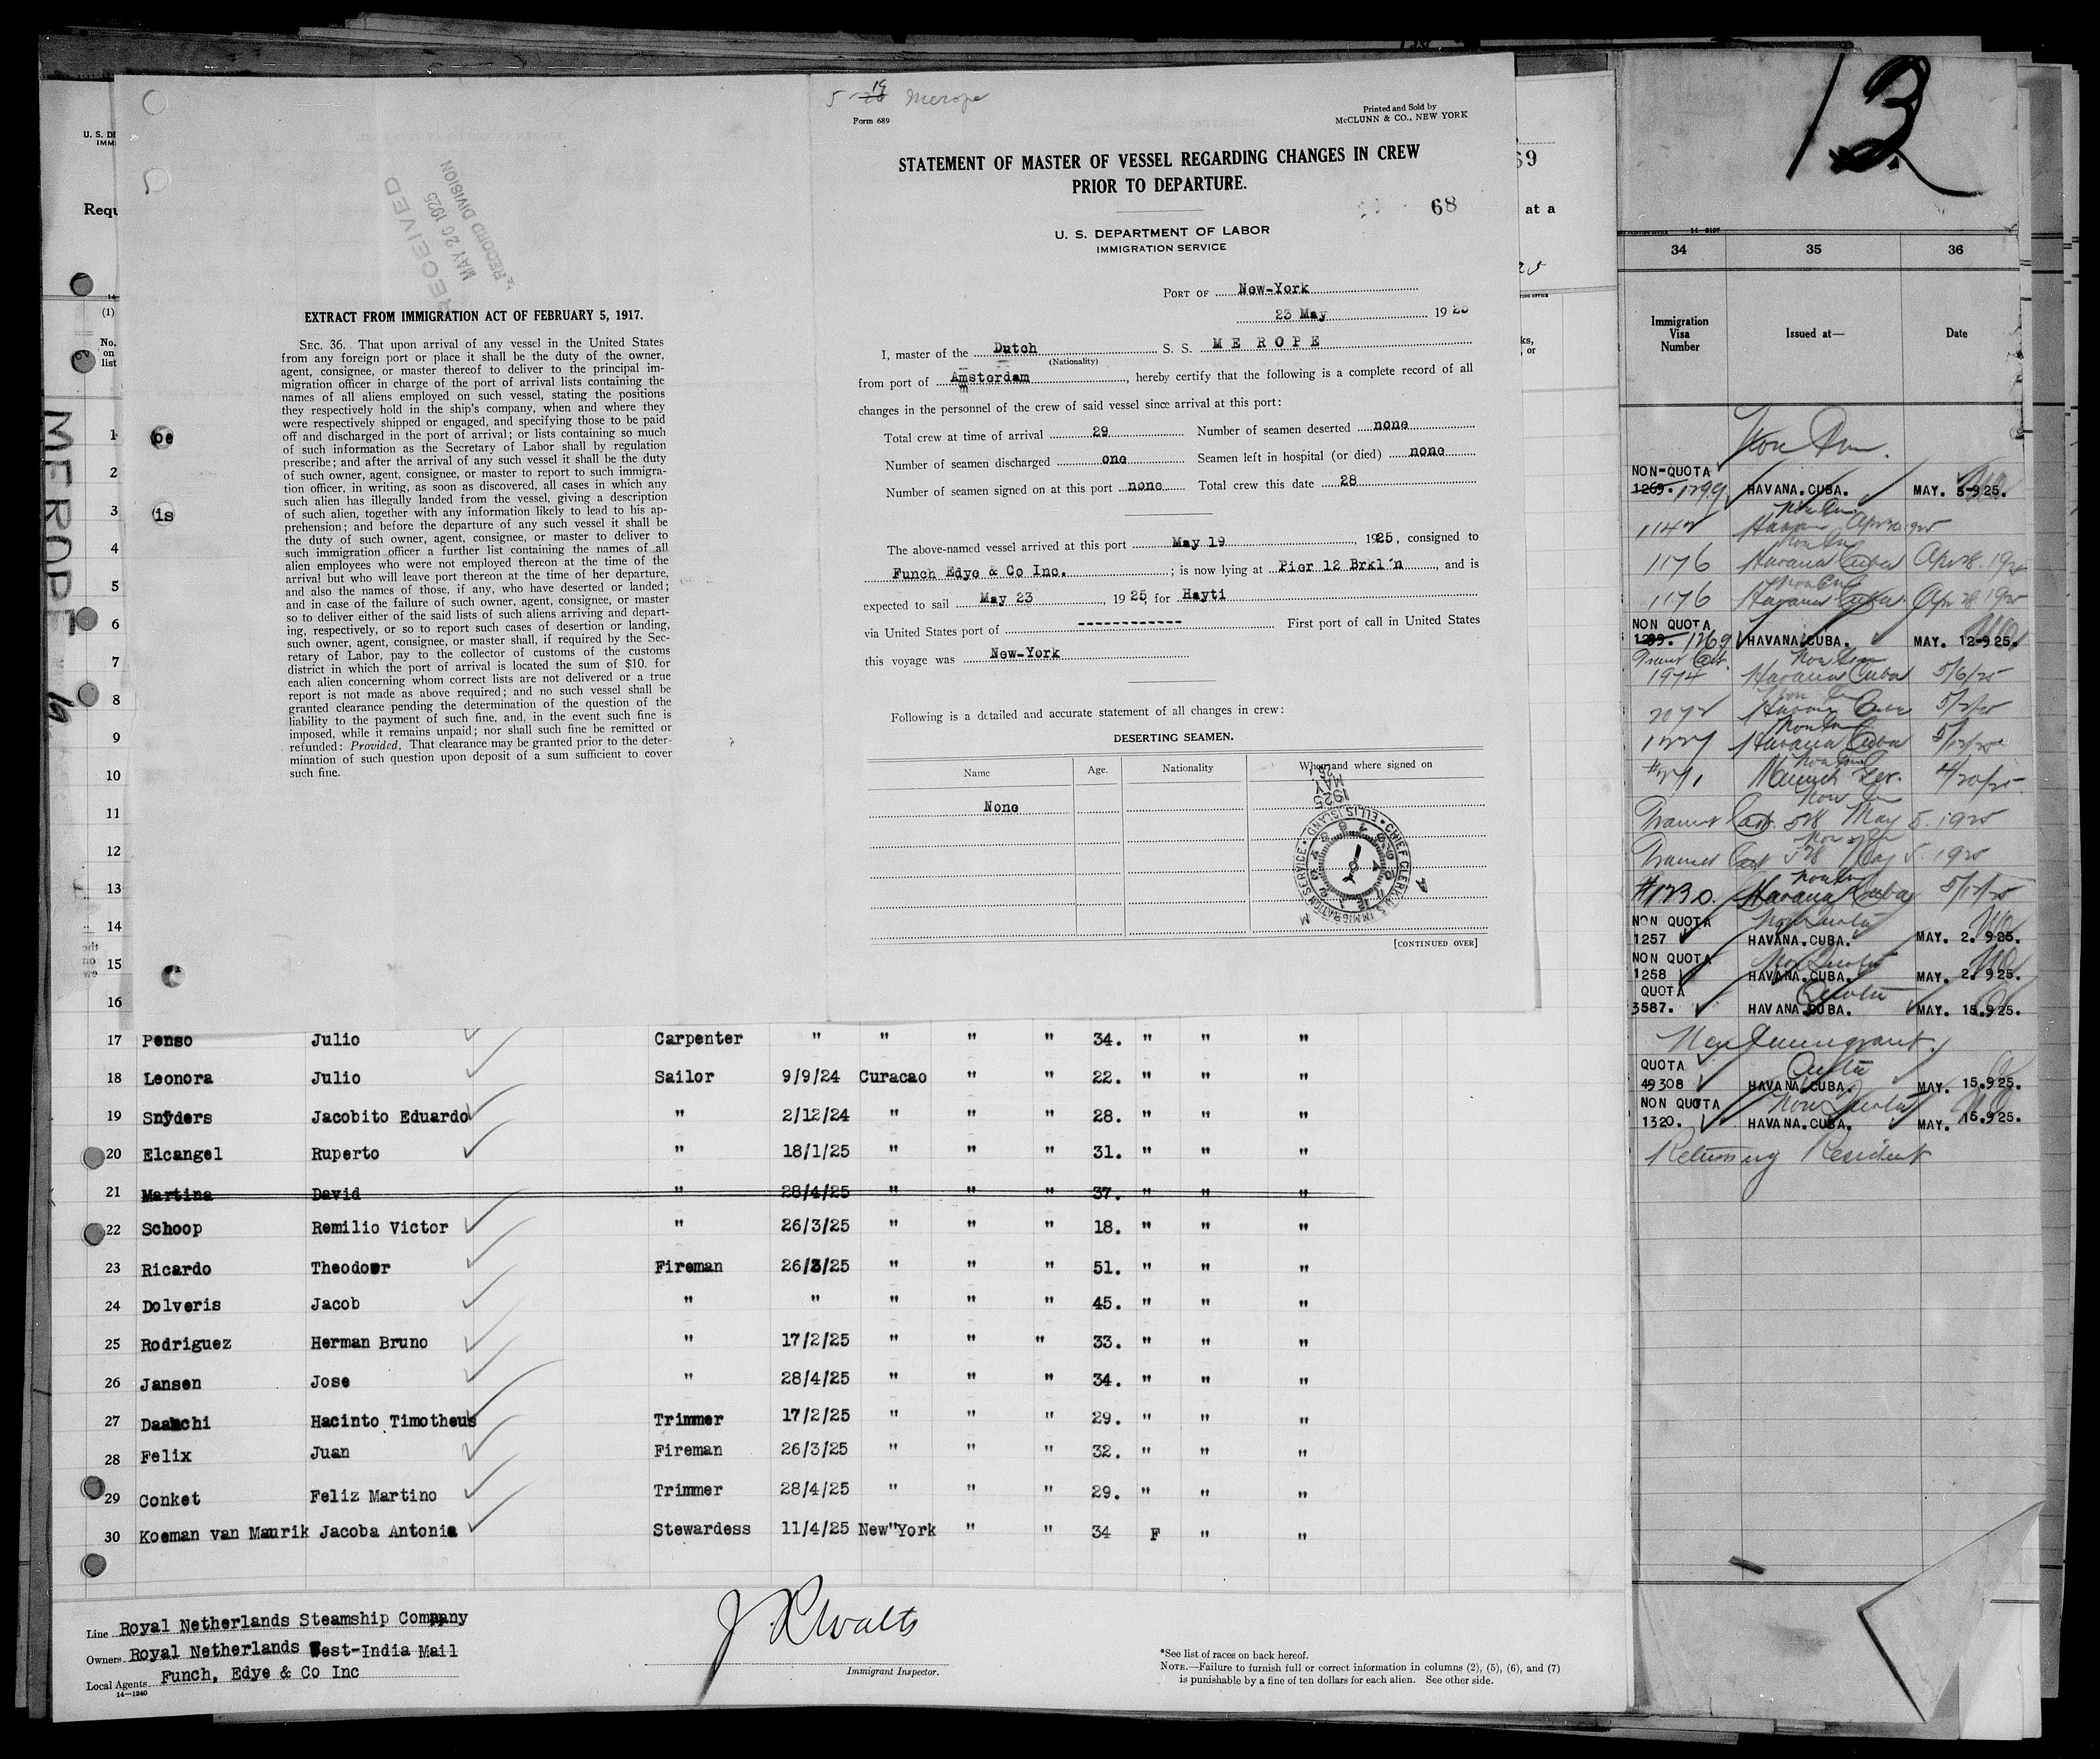 5-19 Merope
Form 689
Printed and Sold by
McCLUNN & CO., NEW YORK
STATEMENT OF MASTER OF VESSEL REGARDING CHANGES IN CREW
PRIOR TO DEPARTURE.
68
U. S. DEPARTMENT OF LABOR
IMMIGRATION SERVICE
PORT OF New-York
23 May 1925
I, master of the Dutch S. S. MEROPE
(Nationality)
from port of Amsterdam, hereby certify that the following is a complete record of all
changes in the personnel of the crew of said vessel since arrival at this port:
Total crew at time of arrival 29 Number of seamen deserted none
Number of seamen discharged one Seamen left in hospital (or died) none
Number of seamen signed on at this port none Total crew this date 28
The above-named vessel arrived at this port May 19, 1925, consigned to
Funch Edye & Co Inc.; is now lying at Pier 12 Brkl'n, and is
expected to sail May 23, 1925, for Hayti
via United States port of ------------ First port of call in United States
this voyage was New-York
Following is a detailed and accurate statement of all changes in crew:
DESERTING SEAMEN.
Name Age. Nationality When and where signed on
None
IMMIGRATION SERVICE ELLIS ISLAND CHIEF CLERK'S
MAY
1925
[CONTINUED OVER]
RECEIVED
MAY 26 1925
RECORD DIVISION
EXTRACT FROM IMMIGRATION ACT OF FEBRUARY 5, 1917.
SEC. 36. That upon arrival of any vessel in the United States
from any foreign port or place it shall be the duty of the owner,
agent, consignee, or master thereof to deliver to the principal im-
migration officer in charge of the port of arrival lists containing the
names of all aliens employed on such vessel, stating the positions
they respectively hold in the ship's company, when and where they
were respectively shipped or engaged, and specifying those to be paid
off and discharged in the port of arrival; or lists containing so much
of such information as the Secretary of Labor shall by regulation
prescribe; and after the arrival of any such vessel it shall be the duty
of such owner, agent, consignee, or master to report to such immigra-
tion officer, in writing, as soon as discovered, all cases in which any
such alien has illegally landed from the vessel, giving a description
of such alien, together with any information likely to lead to his ap-
prehension; and before the departure of any such vessel it shall be
the duty of such owner, agent, consignee, or master to deliver to
such immigration officer a further list containing the names of all
alien employees who were not employed thereon at the time of the
arrival but who will leave port thereon at the time of her departure,
and also the names of those, if any, who have deserted or landed;
and in case of the failure of such owner, agent, consignee, or master
so to deliver either of the said lists of such aliens arriving and depart-
ing, respectively, or so to report such cases of desertion or landing,
such owner, agent, consignee, or master shall, if required by the Sec-
retary of Labor, pay to the collector of customs of the customs
district in which the port of arrival is located the sum of $10. for
each alien concerning whom correct lists are not delivered or a true
report is not made as above required; and no such vessel shall be
granted clearance pending the determination of the question of the
liability to the payment of such fine, and, in the event such fine is
imposed, while it remains unpaid; nor shall such fine be remitted or
refunded: Provided, That clearance may be granted prior to the deter-
mination of such question upon deposit of a sum sufficient to cover
such fine.
U. S. DE
IMMI
Requ
(1)
No.
on
list
MEROPE
be
is
1
2
3
4
5
6
7
8
9
10
11
12
13
14
15
16
17 Penso Julio Carpenter " " " " 34. " " "
18 Leonora Julio Sailor 9/9/24 Curacao " " 22. " " "
19 Snyders Jacobito Eduardo " 2/12/24 " " " 28. " " "
20 Elcangel Ruperto " 18/1/25 " " " 31. " " "
21 Martina David " 28/4/25 " " " 37. " " "
22 Schoop Remilio Victor " 26/3/25 " " " 18. " " "
23 Ricardo Theodoor Fireman 26/3/25 " " " 51. " " "
24 Dolveris Jacob " " " " " 45. " " "
25 Rodriguez Herman Bruno " 17/2/25 " " " 33. " " "
26 Jansen Jose " 28/4/25 " " " 34. " " "
27 Hacinto Timotheus Trimmer 17/2/25 " " " 29. " " "
28 Felix Juan Fireman 26/3/25 " " " 32. " " "
29 Conket Feliz Martino Trimmer 28/4/25 " " " 29. " " "
30 Koeman van Maurik Jacoba Antonia Stewardess 11/4/25 New"York " " 34 F " "
Line Royal Netherlands Steamship Company
Owners Royal Netherlands West-India Mail
Local Agents Funch, Edye & Co Inc
14-1240
Immigrant Inspector.
*See list of races on back hereof.
NOTE.—Failure to furnish full or correct information in columns (2), (5), (6), and (7)
is punishable by a fine of ten dollars for each alien. See other side.
69
at a
ks,
or
13
34 35 36
Immigration
Visa
Number
Issued at—
Date
NON-QUOTA
1269. 1299 HAVANA.CUBA. MAY. 5-925.
1142 Havana Apr 30 1925
1176 Havana Cuba Apr 28. 1925
1176 Havana Cuba Apr 28 1925
NON QUOTA
1299. 1269 HAVANA.CUBA. MAY. 12-925.
Transit Cert.
1974 Havana Cuba 5/6/25
2072 Havana Cuba 5/2/25
1227 Havana Cuba 5/12/25
#271 Munich Ger. 4/20/25
Transit Cert. 528 May 5. 1925
Transit Cert 528 May 5. 1925
#1230. Havana Cuba 5/12/25
NON QUOTA
1257 HAVANA.CUBA. MAY. 2.925.
NON QUOTA
1258 HAVANA.CUBA. MAY. 2.925.
QUOTA Quota
3587. HAVANA.CUBA. MAY. 15.925.
Non Immigrant.
QUOTA Quota
49308 HAVANA.CUBA. MAY. 15.925.
NON QUOTA Non Quota
1320. HAVANA.CUBA. MAY. 15.925.
Returning Resident